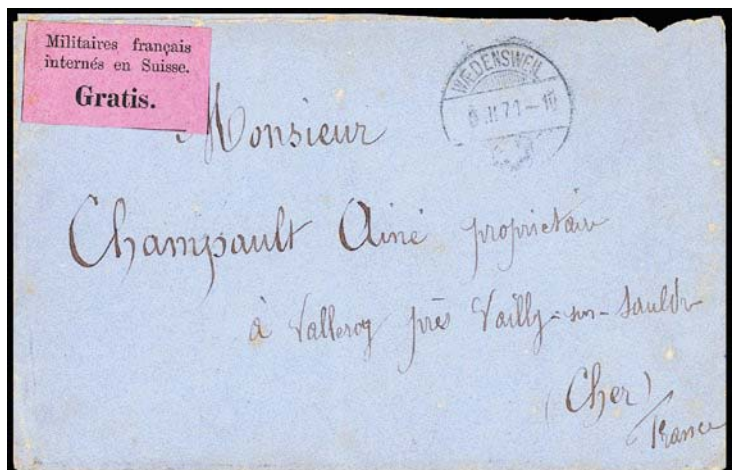 Militaires français
internés en Suisse.
Gratis.
WÆDENSWEIL
.II.71–10
Monsieur
Champault Ainé propriétaire
à Valleroy près Vailly-sur-Sauldre
(Cher)
France